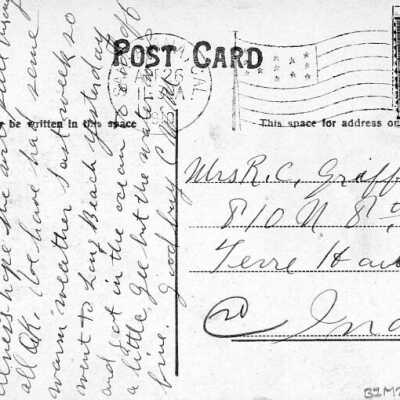 POST CARD
be written in this space
This space for address on
illness hope she and
all O.K. We have had some
warm weather last week so
went to Long Beach yesterday
and got in the ocean
a little, Gee but the water was
fine. Good bye
Mrs R. C. Griff
810 N 8
Terre Hau
Ind